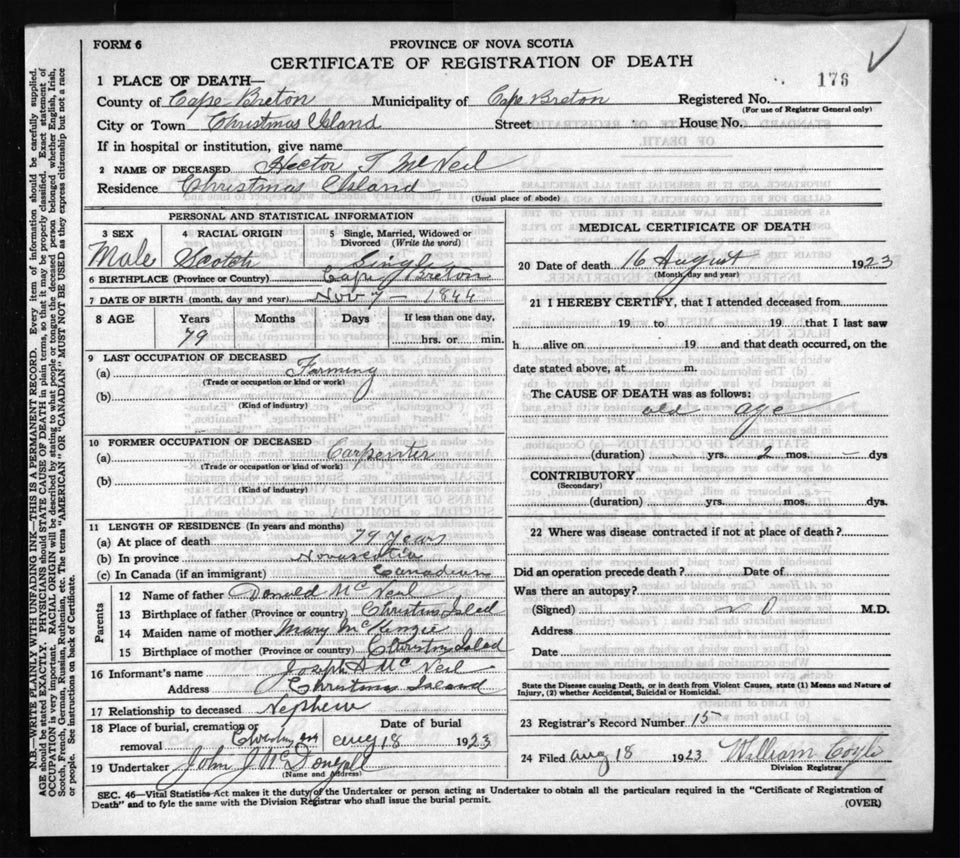 FORM 6
PROVINCE OF NOVA SCOTIA
CERTIFICATE OF REGISTRATION OF DEATH
176
1 PLACE OF DEATH—
County of Cape Breton Municipality of Cape Breton Registered No.
(For use of Registrar General only)
City or Town Christmas Island Street House No.
If in hospital or institution, give name
2 NAME OF DECEASED Hector T McNeil
Residence Christmas Island
(Usual place of abode)
PERSONAL AND STATISTICAL INFORMATION
3 SEX 4 RACIAL ORIGIN 5 Single, Married, Widowed or Divorced (Write the word)
Male Scotch Single
6 BIRTHPLACE (Province or Country) Cape Breton
7 DATE OF BIRTH (month, day and year) Nov 7 — 1844
8 AGE Years Months Days If less than one day,
79 hrs. or min.
9 LAST OCCUPATION OF DECEASED
(a) Farming
(Trade or occupation or kind or work)
(b)
(Kind of industry)
10 FORMER OCCUPATION OF DECEASED
(a) Carpenter
(Trade or occupation or kind or work)
(b)
(Kind of industry)
11 LENGTH OF RESIDENCE (In years and months)
(a) At place of death 79 years
(b) In province Novascotia
(c) In Canada (if an immigrant) Canadian
Parents
12 Name of father Donald McNeil
13 Birthplace of father (Province or country) Christms Islad
14 Maiden name of mother Mary McKinzie
15 Birthplace of mother (Province or country) Christms Islad
16 Informant's name Joseph A McNeil
Address Christmas Island
17 Relationship to deceased Nephew
18 Place of burial, cremation or removal Date of burial
Aug 18 1923
19 Undertaker John J McDougall
(Name and Address)
MEDICAL CERTIFICATE OF DEATH
20 Date of death 16 August 1923
(Month, day and year)
21 I HEREBY CERTIFY, that I attended deceased from
19 to 19 that I last saw
h alive on 19 and that death occurred, on the
date stated above, at m.
The CAUSE OF DEATH was as follows:
old age
(duration) yrs. 2 mos. — dys
CONTRIBUTORY
(Secondary)
(duration) yrs. mos. dys.
22 Where was disease contracted if not at place of death?
Did an operation precede death? Date of
Was there an autopsy?
(Signed) M.D.
Address
Date
State the Disease causing Death, or in Death from Violent Causes, state (1) Means and Nature of
Injury, (2) whether Accidental, Suicidal or Homicidal.
23 Registrar's Record Number 15
24 Filed Aug 18 1923 William Coyle
Division Registrar
SEC. 46—Vital Statistics Act makes it the duty of the Undertaker or person acting as Undertaker to obtain all the particulars required in the "Certificate of Registration of
Death" and to fyle the same with the Division Registrar who shall issue the burial permit.
(OVER)
N.B. WRITE PLAINLY WITH UNFADING INK—THIS IS A PERMANENT RECORD. Every item of information should be carefully supplied.
AGE should be stated EXACTLY. PHYSICIANS should STATE CAUSE OF DEATH in plain terms, so that it may be properly classified. Exact statement of
OCCUPATION is very important. RACIAL ORIGIN will be described by stating to what people or tongue the deceased person belonged whether English, Irish,
Scotch, French, German, Russian, Ruthenian, etc. The terms "AMERICAN" OR "CANADIAN" MUST NOT BE USED as they express citizenship but not a race
or people. See instructions on back of Certificate.